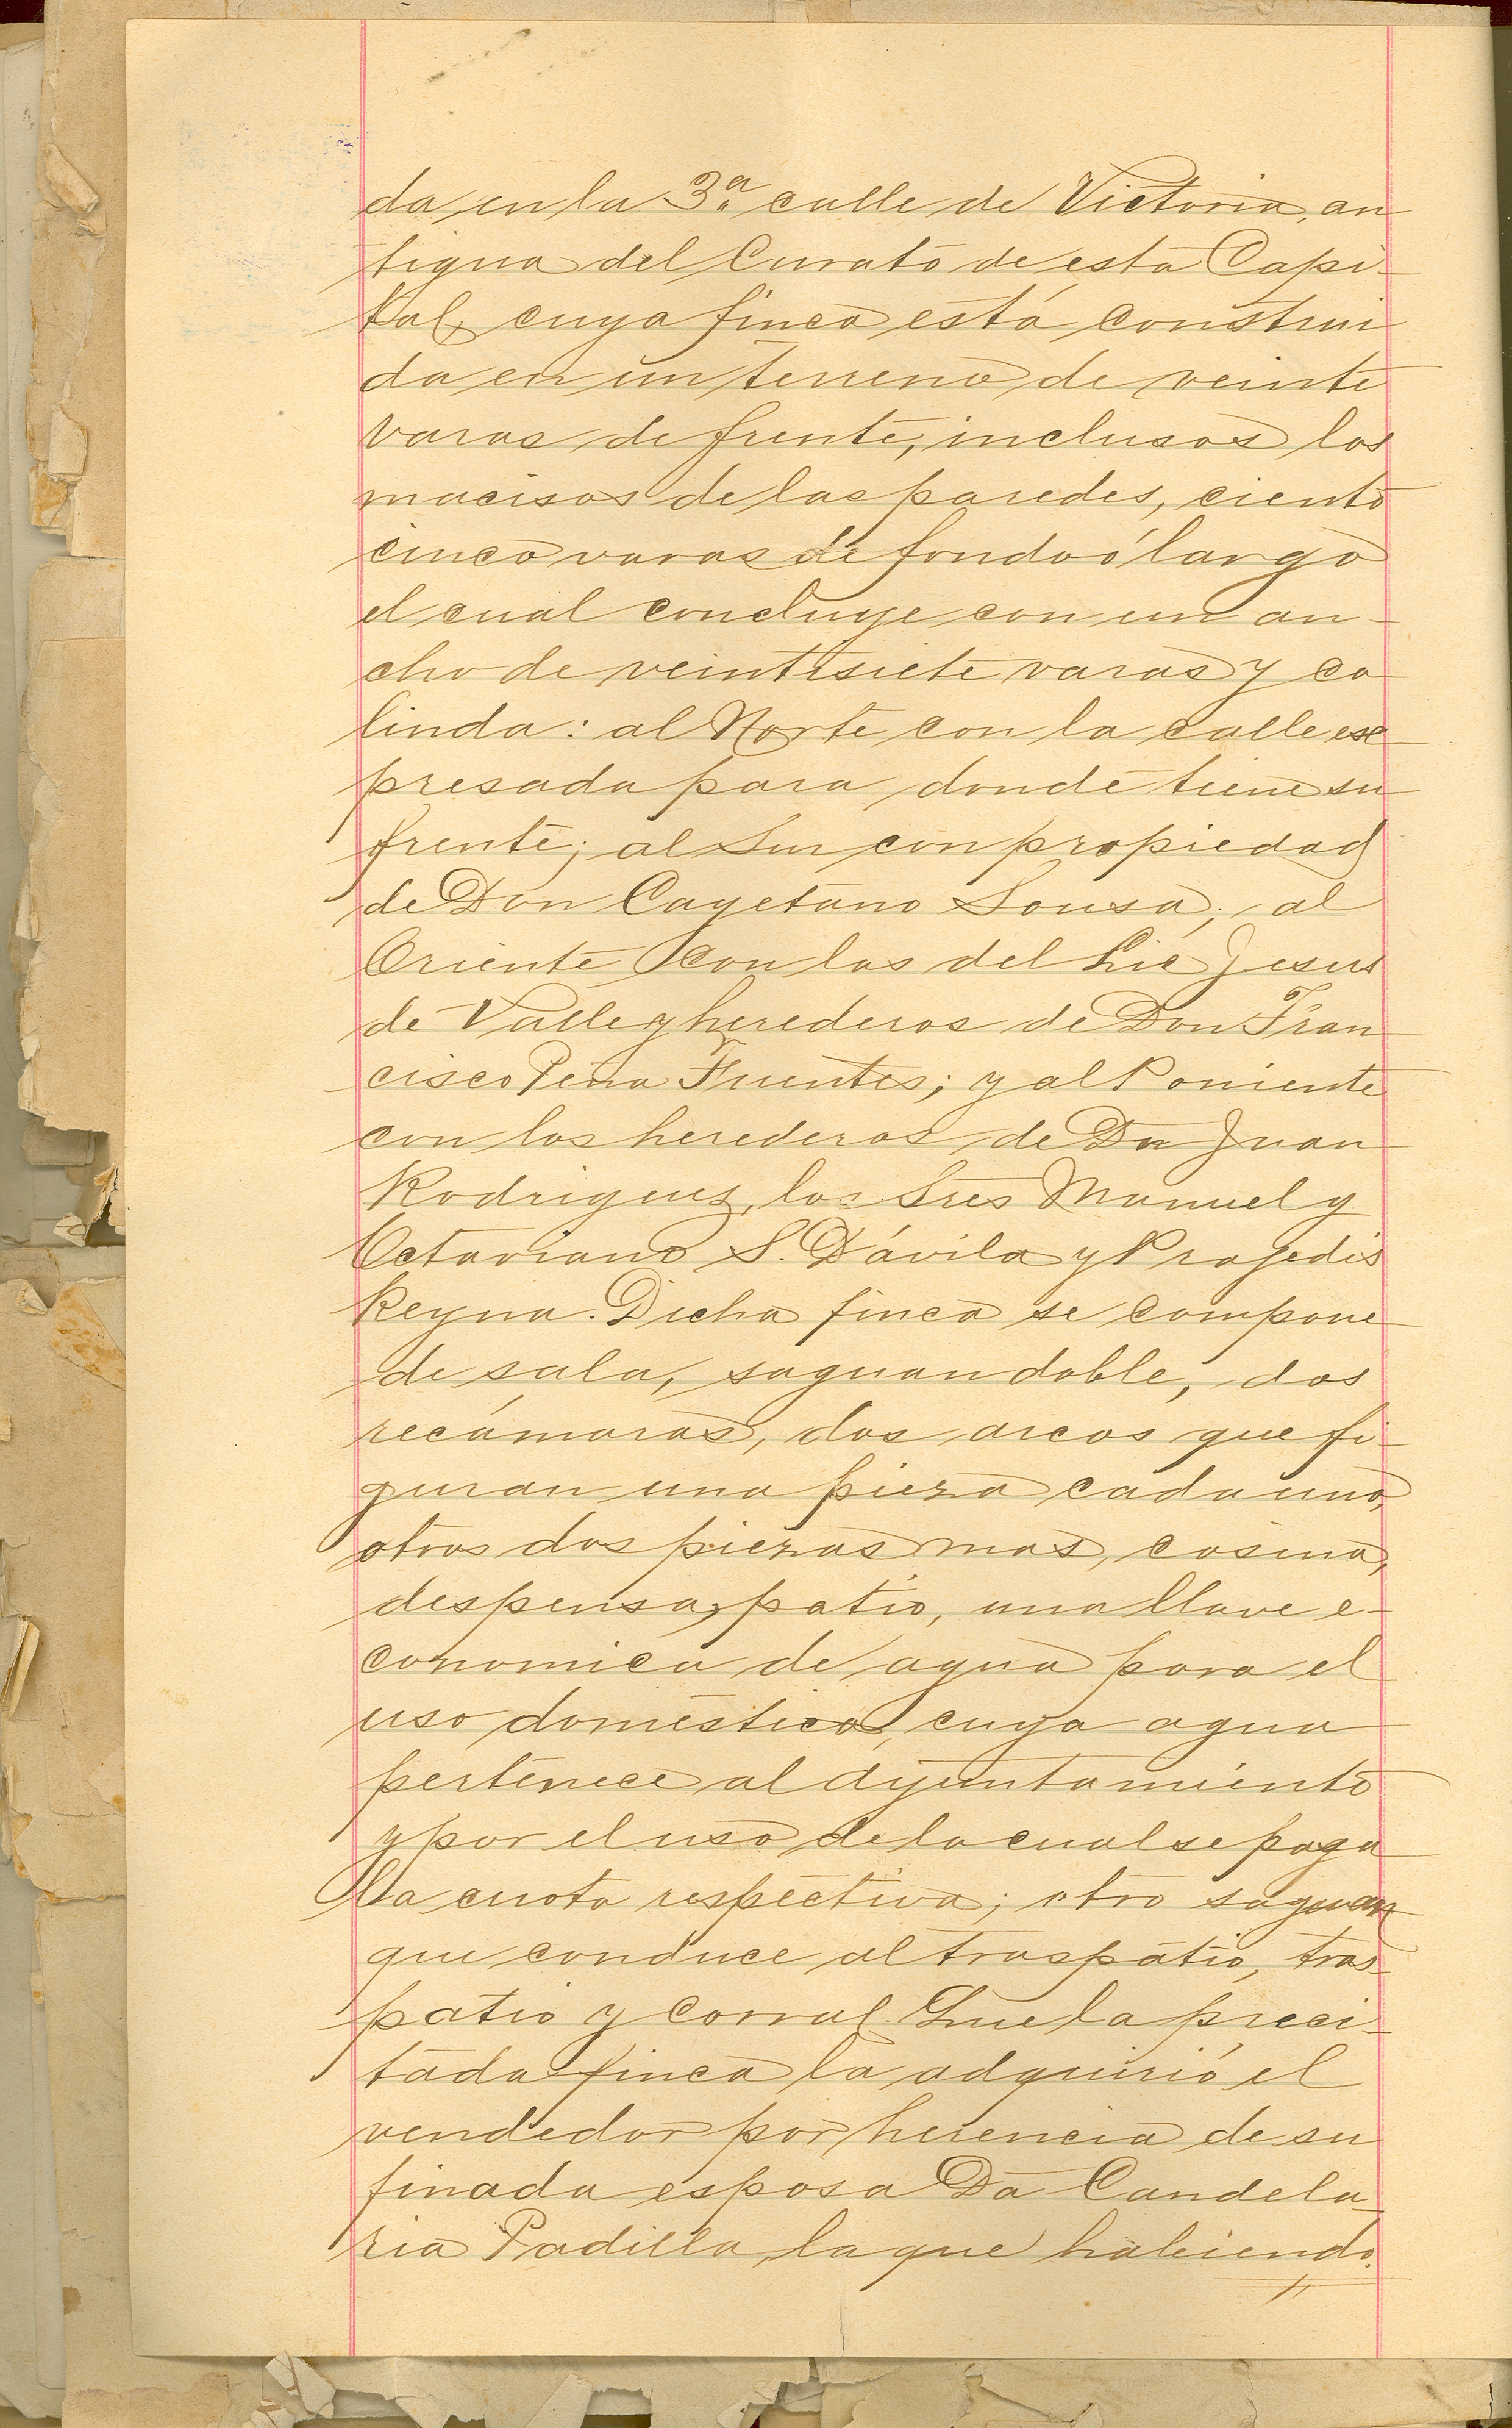 da en la 3.ª calle de Victoria, an
tigua del Curato de esta Capi-
tal, cuya finca está construi
da en un terreno de veinte
varas de frente, inclusos los
macisos de las paredes, ciento
cinco varas de fondo ó largo
el cual concluye con un an-
cho de veintisiete varas y co
linda: al Norte con la calle ex
presada para donde tiene su
frente; al Sur con propiedad
de Don Cayetano Sousa; al
Oriente con las del Lic Jesus
de Valle y herederos de Don Fran
cisco Peña Fuentes; y al Poniente
con los herederos de Dn Juan
Rodriguez, los Sres Manuel y
Octaviano S. Dávila y Prajedis
Reyna. Dicha finca se compone
de sala, saguan doble, dos
recámaras, dos arcos que fi-
guran una pieza cada uno,
otras dos piezas mas, cosina,
despensa, patio, una llave e-
conomica de agua para el
uso doméstico, cuya agua
pertenece al Ayuntamiento
y por el uso de la cual se paga
la cuota respectiva; otro saguan
que conduce al traspatio, tras-
patio y corral. Que la preci-
tada finca la adquirió el
vendedor por herencia de su
finada esposa Da Candela-
ria Padilla, la que habiendo